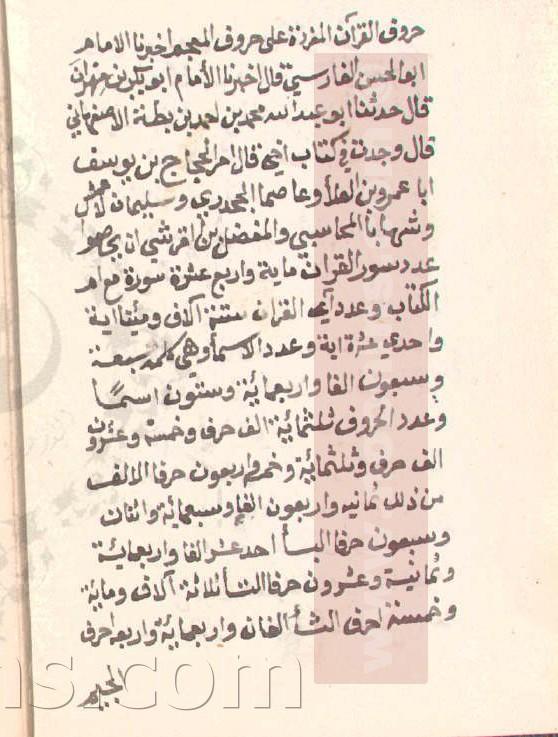 حروف القرآن المفردة على حروف المعجم اخبرنا الامام
ابو الحسن الفارسي قال اخبرنا الأمام ابو بكر بن مهران
قال حدثنا ابو عبد الله محمد بن احمد بن بطة الاصفهاني
قال وجدت في كتاب اخي قال امر الحجاج بن يوسف
ابا عمرو بن العلا وعاصما الجحدري وسليمان الاعمش
وشهابا المحاسبي والمفضل بن القرشي ان يحصوا
عدد سور القران ماية واربع عشرة سورة مع ام
الكتاب وعدد آي القران ستة آلاف ومئتا اية
واحدي عشرة اية وعدد الاسما وهي كلمه سبعة
وسبعون الفا واربعمائة وستون اسمًا
وعدد الحروف ثلثمائية الف حرف وخمسة وعشرون
الف حرف وثلثمائية وخمسه واربعون حرفا الالف
من ذلك ثمانيه واربعون الفا وسبعمائة واثنان
وسبعون حرفا البأ احد عشر الفا واربعمايئة
وثمانية وعشرون حرفا التأ ثلاثة آلاف وماية
وخمسة احرف الثأ الفان واربعماية واربعه احرف
الجيم
ns.com